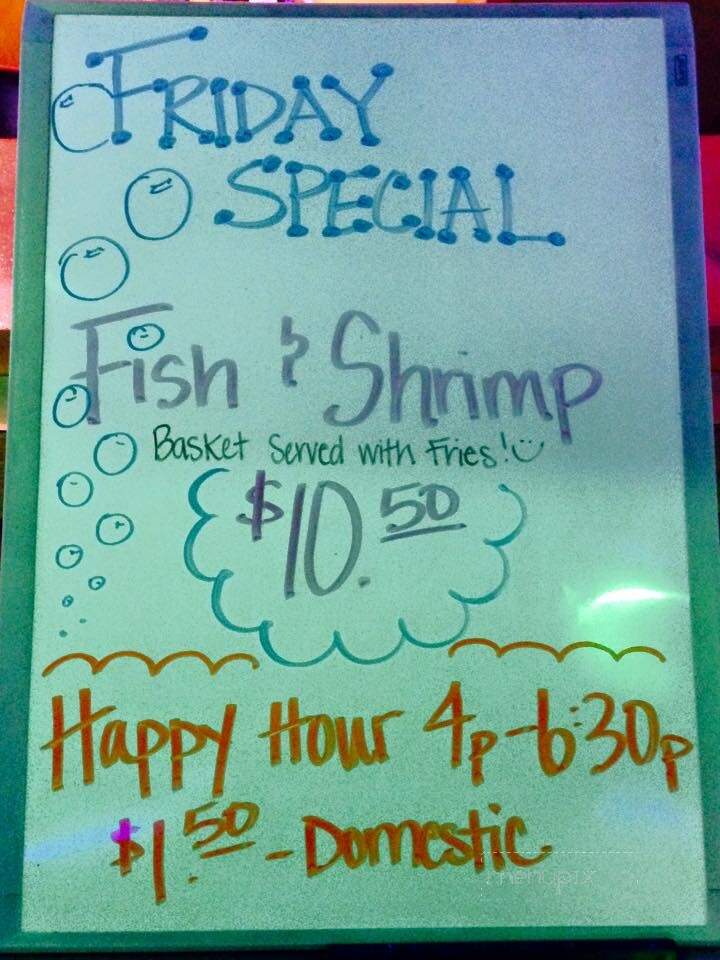 FRIDAY
SPECIAL
Fish & Shrimp
Basket Served with Fries! :)
$10.50
Happy Hour 4p-6:30p
$1.50 - Domestic
menupix